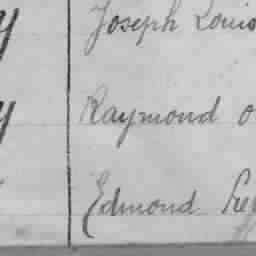 y Joseph Louis
y Raymond o
Edmond